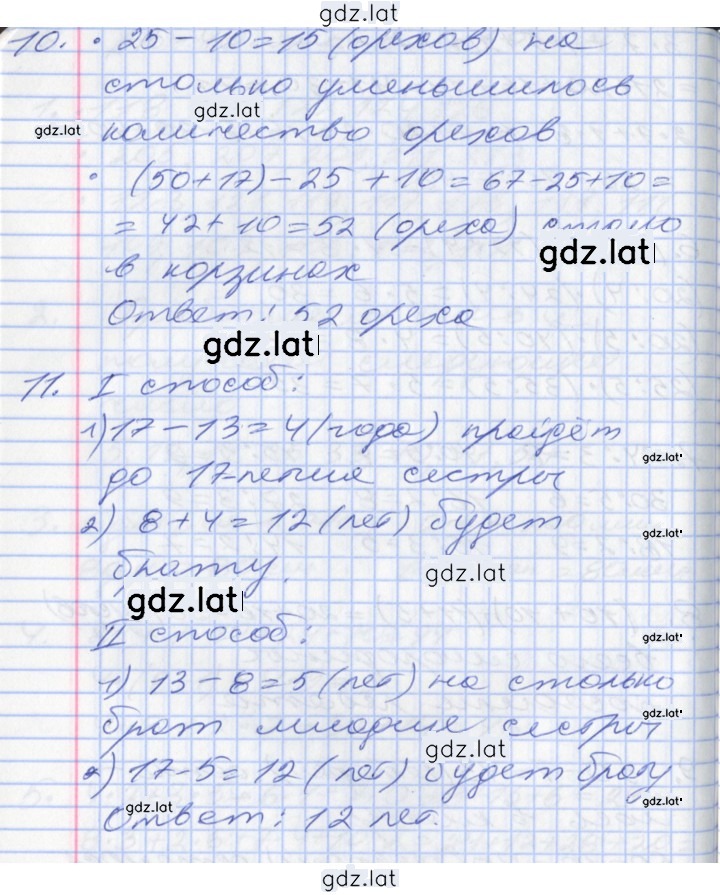 gdz.lat
10. • 25 - 10 = 15 (орехов) на
столько уменьшилось
gdz.lat
gdz.lat количество орехов
• (50+17) - 25 + 10 = 67 - 25 + 10 =
= 42 + 10 = 52 (ореха) стало
gdz.lat
в корзинах
Ответ: 52 ореха
gdz.lat
11. I способ:
1) 17 - 13 = 4 (года) пройдёт
gdz.lat
до 17-летия сестры
2) 8 + 4 = 12 (лет) будет
gdz.lat
брату.
gdz.lat
gdz.lat
II способ:
gdz.lat
1) 13 - 8 = 5 (лет) на столько
брат младше сестры
gdz.lat
gdz.lat
2) 17 - 5 = 12 (лет) будет брату
gdz.lat
gdz.lat
Ответ: 12 лет.
gdz.lat